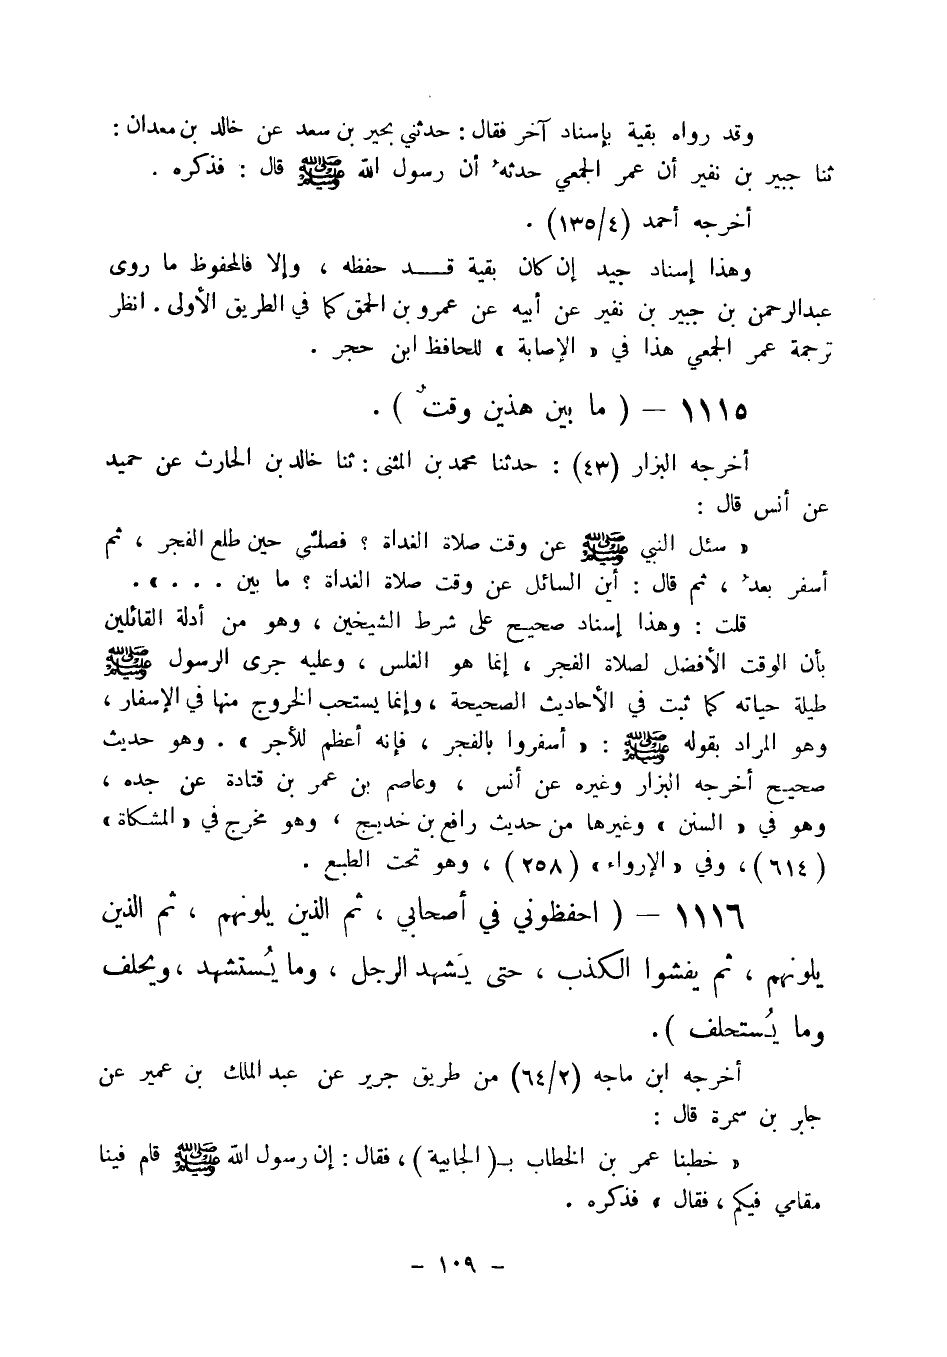 وقد رواه بقية بإسناد آخر فقال : حدثني بحير بن سعد عن خالد بن معدان :
ثنا جبير بن نفير أن عمر الجمعي حدثه أن رسول الله ﷺ قال : فذكره .
أخرجه أحمد (٤/١٣٥) .
وهذا إسناد جيد إن كان بقية قـــد حفظه ، وإلا فالمحفوظ ما روى
عبدالرحمن بن جبير بن نفير عن أبيه عن عمرو بن الحمق كما في الطريق الأولى . انظر
ترجمة عمر الجمعي هذا في « الإصابة » للحافظ ابن حجر .
١١١٥ – ( ما بين هذين وقتٌ ) .
أخرجه البزار (٤٣) : حدثنا محمد بن المثنى : ثنا خالد بن الحارث عن حميد
عن أنس قال :
« سئل النبي ﷺ عن وقت صلاة الغداة ؟ فصلّى حين طلع الفجر ، ثم
أسفر بعدُ ، ثم قال : أين السائل عن وقت صلاة الغداة ؟ ما بين . . . » .
قلت : وهذا إسناد صحيح على شرط الشيخين ، وهو من أدلة القائلين
بأن الوقت الأفضل لصلاة الفجر ، إنما هو الغلس ، وعليه جرى الرسول ﷺ
طيلة حياته كما ثبت في الأحاديث الصحيحة ، وإنما يستحب الخروج منها في الإسفار ،
وهو المراد بقوله ﷺ : « أسفروا بالفجر ، فإنه أعظم للأجر » . وهو حديث
صحيح أخرجه البزار وغيره عن أنس ، وعاصم بن عمر بن قتادة عن جده ،
وهو في « السنن » وغيرها من حديث رافع بن خديج ، وهو مخرج في « المشكاة »
(٦١٤) ، وفي « الإرواء » (٢٥٨) ، وهو تحت الطبع .
١١١٦ – ( احفظوني في أصحابي ، ثم الذين يلونهم ، ثم الذين
يلونهم ، ثم يفشوا الكذب ، حتى يَشهد الرجل ، وما يُستشهد ، ويحلف
وما يُستحلف ) .
أخرجه ابن ماجه (٢/٦٤) من طريق جرير عن عبد الملك بن عمير عن
جابر بن سمرة قال :
« خطبنا عمر بن الخطاب بـ( الجابية ) ، فقال : إن رسول الله ﷺ قام فينا
مقامي فيكم ، فقال » فذكره .
– ١٠٩ –